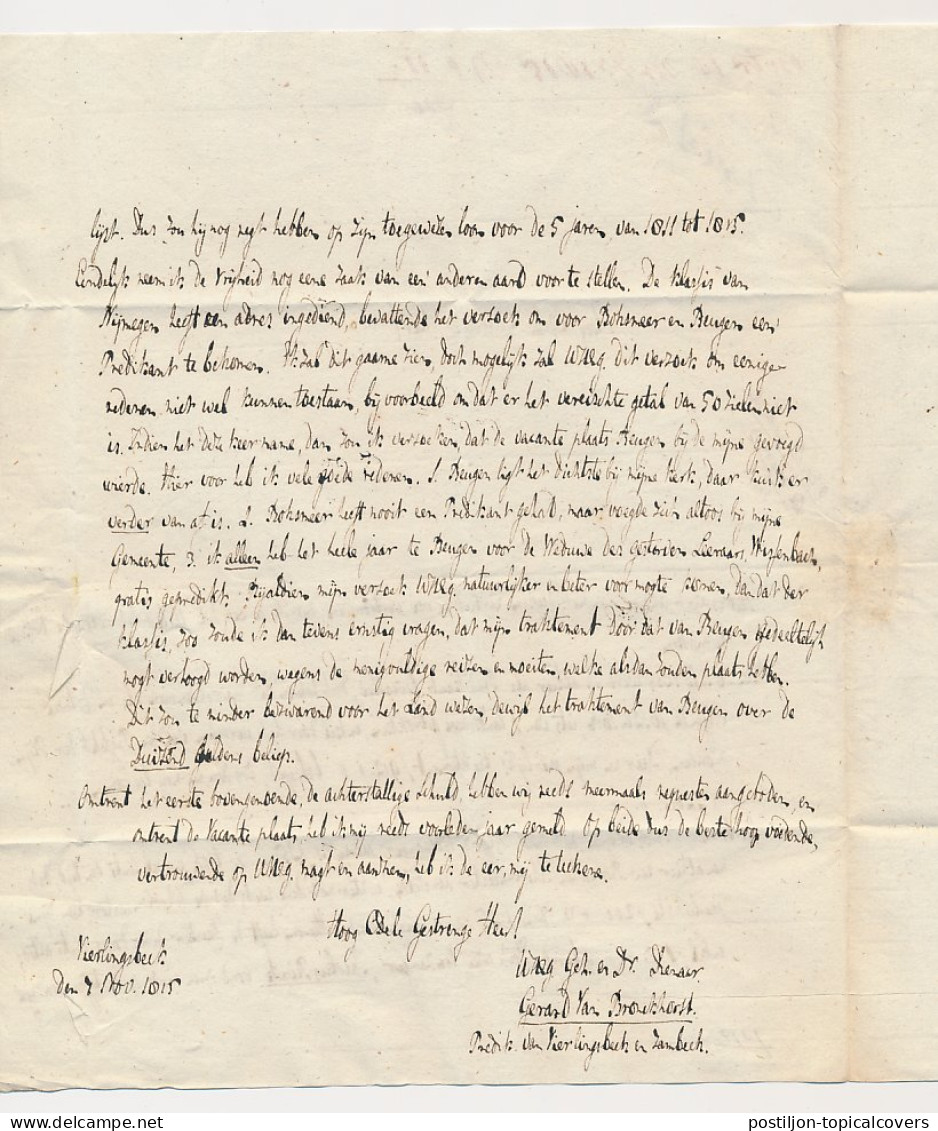 lijst. Dus zou hij nog regt hebben op zijn toegewezen loon voor de 5 jaren, van 1811 tot 1815.
Eindelijk neem ik de vrijheid nog eene zaak van een' anderen aard voor te stellen. De klassis van
Nijmegen heeft een adres ingediend, bevattende het verzoek om voor Boksmeer en Beugen een'
Predikant te bekomen. Ik zal dit gaarne zien, doch mogelijk zal UHEg. dit verzoek om eenige
redenen niet wel kunnen toestaan, bij voorbeeld omdat er het vereischte getal van 50 zielen niet
is. Indien het deze keer name, dan zou ik verzoeken, dat de vacante plaats Beugen bij de mijne gevoegd
wierde. Hier voor heb ik vele goede redenen. 1. Beugen ligt het dichtste bij mijne kerk, daar Kuik er
verder van af is. 2. Boksmeer heeft nooit een Predikant gehad, maar voegde zich altoos bij mijne
Gemeente, 3. ik alleen heb het heele jaar te Beugen voor de Weduwe des gestorven Leeraars, Wissenbach,
gratis gepredikt. Bijaldien mijn verzoek UHEg. natuurlijker en beter voor mogte komen, dan dat der
klassis, zoo zoude ik dan tevens ernstig vragen, dat mijn traktement door dat van Beugen gedeeltelijk
mogt verhoogd worden, wegens de menigvuldige reizen en moeiten, welke alsdan zouden plaats hebben.
Dit zou te minder bezwarend voor het Land wezen, dewijl het traktement van Beugen over de
Duizend guldens beliep.
Omtrent het eerste bovengenoemde, de achterstallige schuld, hebben wij reeds meermaals requesten aangeboden, en
omtrent de vacante plaats heb ik mij reeds voorleden jaar gemeld. Op beide dus de beste hoop voedende,
vertrouwende op UHEg. magt en aanzien, heb ik de eer, mij te teekenen.
Hoog Edele Gestrenge Heer!
Vierlingsbeek
den 7 Nov. 1815
UHEg Geh. en Dv. Dienaar
Gerard Van Bronkhorst.
Predik. van Vierlingsbeek en Sambeek.
postiljon-topicalcovers